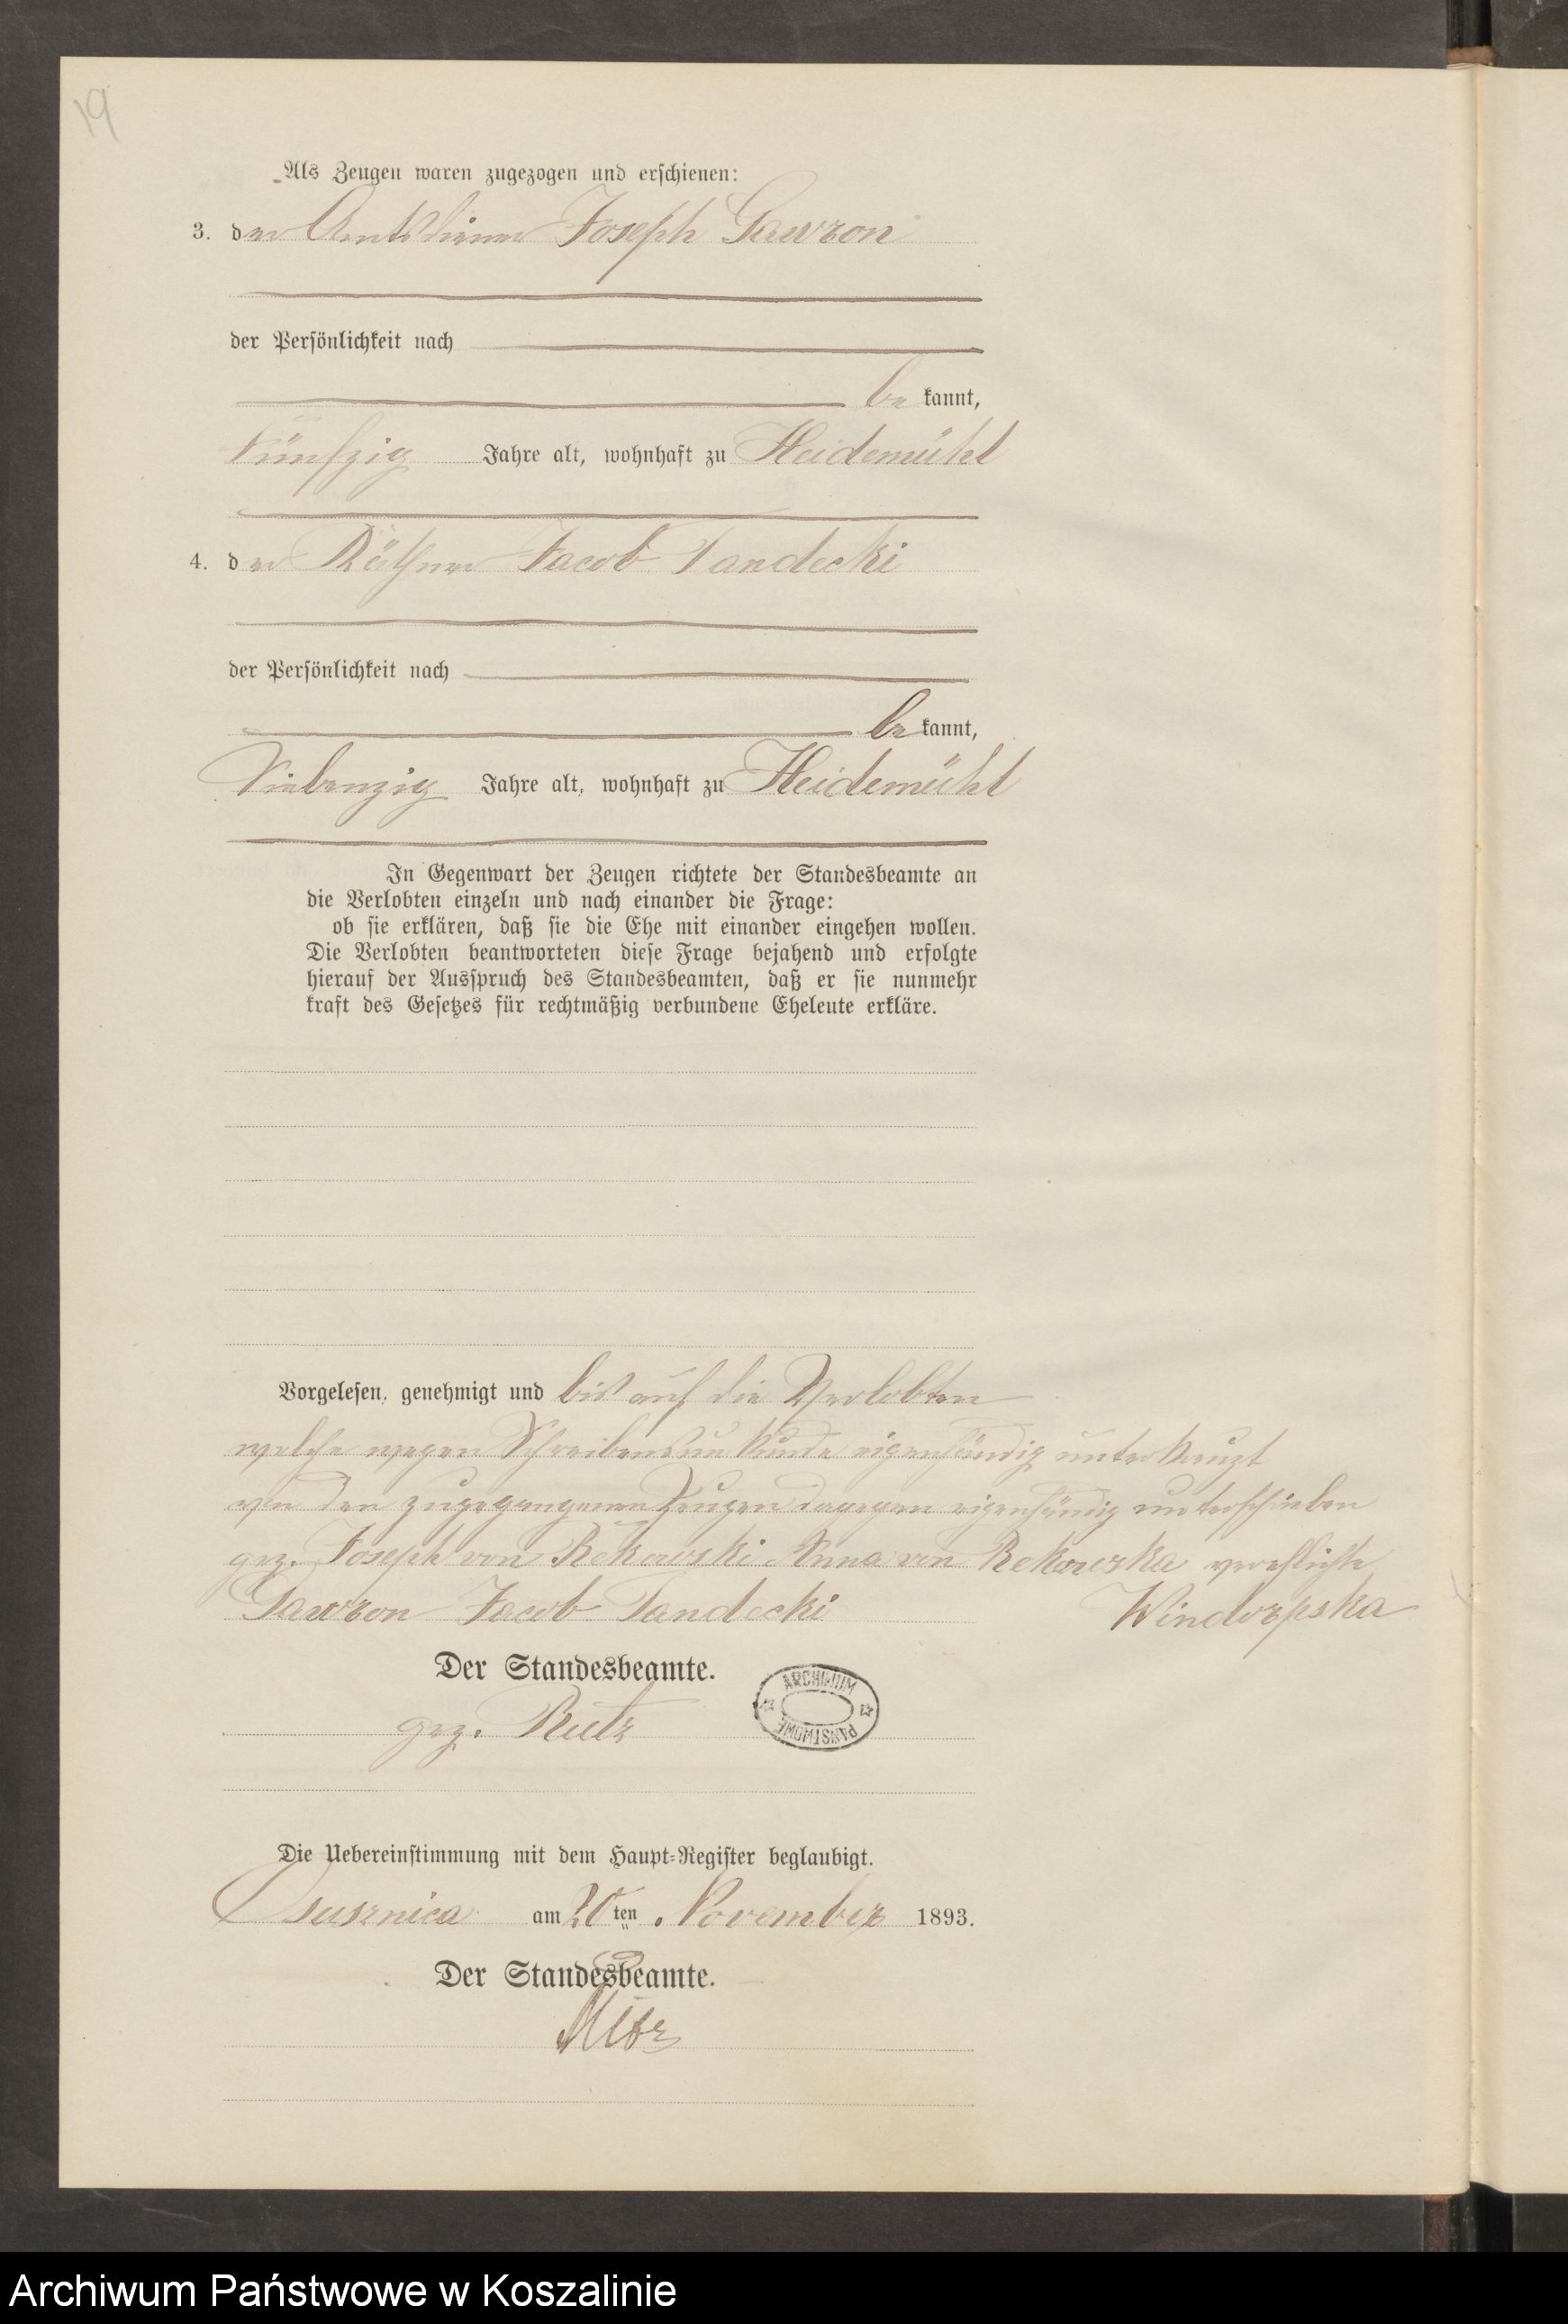 19
Als Zeugen waren zugezogen und erschienen:
3. der Amtsdiener Joseph Gawron
der Persönlichkeit nach
be kannt,
fünfzig Jahre alt, wohnhaft zu Heidemühl
4. der Käthner Jacob Tandecki
der Persönlichkeit nach
be kannt,
Siebenzig Jahre alt, wohnhaft zu Heidemühl
In Gegenwart der Zeugen richtete der Standesbeamte an
die Verlobten einzeln und nach einander die Frage:
ob sie erklären, daß sie die Ehe mit einander eingehen wollen.
Die Verlobten beantworteten diese Frage bejahend und erfolgte
hierauf der Ausspruch des Standesbeamten, daß er sie nunmehr
kraft des Gesetzes für rechtmäßig verbundene Eheleute erkläre.
Vorgelesen, genehmigt und bis auf die Verlobten
welche wegen Schreibensunkunde eigenhändig unterkreuzt
von den zugegangenen Zeugen dagegen eigenhändig unterschrieben
gez. Joseph von Rekowski Anna von Rekowska verehlichte
Gawron Jacob Tandecki
Der Standesbeamte.
ARCHIWUM PAŃSTWOWE
gez.
Die Uebereinstimmung mit dem Haupt-Register beglaubigt.
am 20ten November 1893.
Der Standesbeamte.
Archiwum Państwowe w Koszalinie